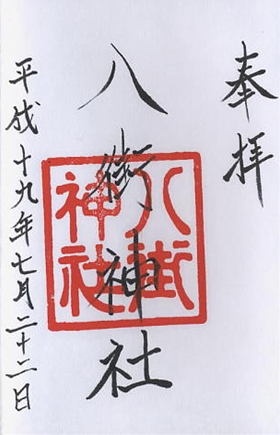 奉拝
八街神社
八街神社
平成十九年七月二十二日